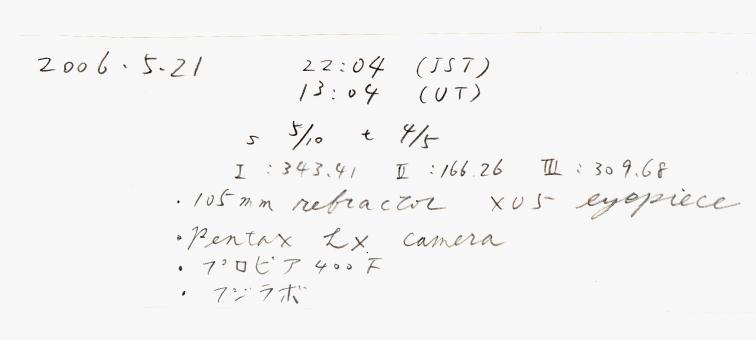 2006.5.21 22:04 (JST)
13:04 (UT)
s 5/10 t 4/5
I :343.41 II :166.26 III :309.68
・105mm refractor XO5 eyepiece
・Pentax LX camera
・プロビア400F
・フジラボ